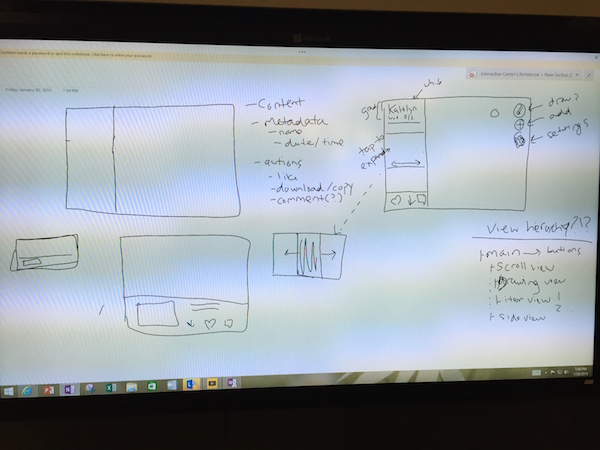 OneNote needs a password to sync this notebook. Click here to enter your password.
Interaction Center's Notebook » New Section 2
Friday, January 30, 2015 7:00 PM
- Content
- metadata
- name
- date/time
- actions
- like
- download/copy
- comment(?)
Kaitlyn
tap to
expand
draw?
add
settings
View hierarchy?!?
main → buttons
scroll view
drawing view
item view
side view
7:08 PM
1/30/2015